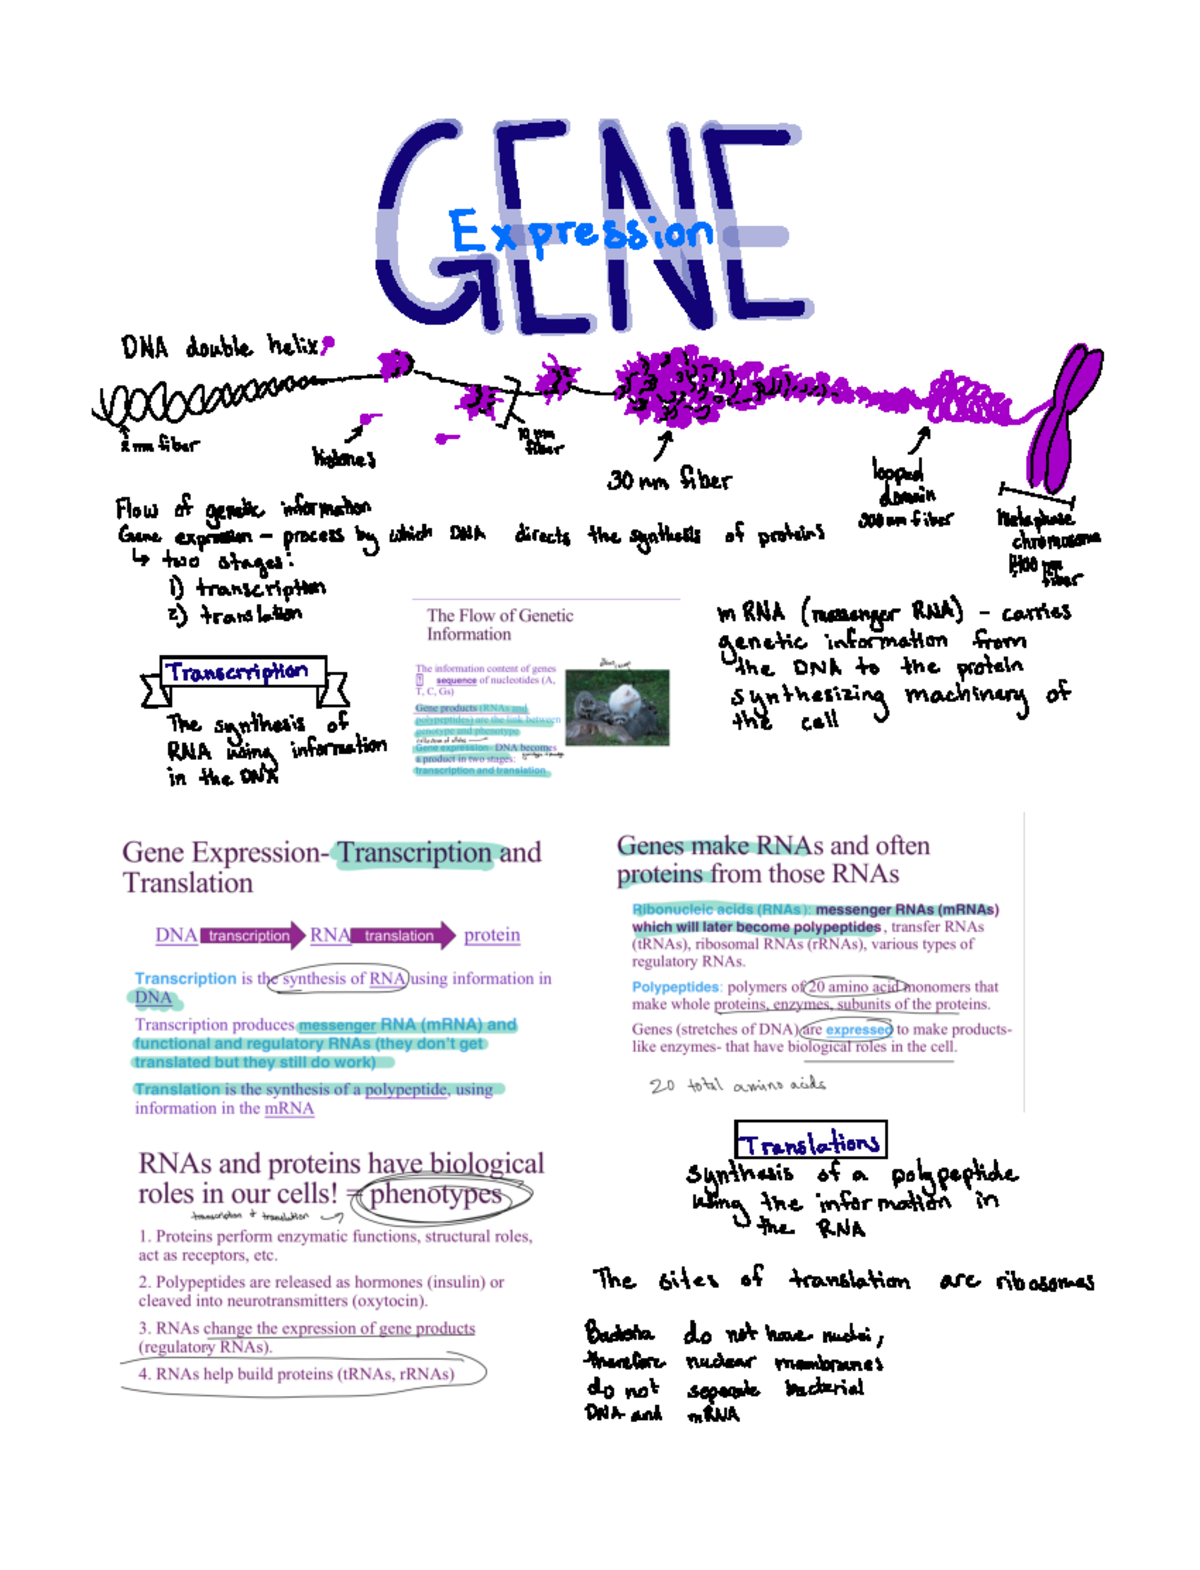 GENE
Expression
DNA double helix
2 nm fiber
histones
10 nm
fiber
30 nm fiber
looped
domain
300 nm fiber
Metaphase
chromosome
1400 nm
fiber
Flow of genetic information
Gene expression – process by which DNA directs the synthesis of proteins
↳ two stages:
1) transcription
2) translation
The Flow of Genetic
Information
The information content of genes
sequence of nucleotides (A,
T, C, Gs)
Gene products (RNAs and
polypeptides) are the link between
genotype and phenotype
Gene expression: DNA becomes
a product in two stages:
transcription and translation
mRNA (messenger RNA) – carries
genetic information from
the DNA to the protein
synthesizing machinery of
the cell
Transcription
The synthesis of
RNA using information
in the DNA
Gene Expression- Transcription and
Translation
DNA transcription RNA translation protein
Transcription is the synthesis of RNA using information in
DNA
Transcription produces messenger RNA (mRNA) and
functional and regulatory RNAs (they don't get
translated but they still do work)
Translation is the synthesis of a polypeptide, using
information in the mRNA
Genes make RNAs and often
proteins from those RNAs
Ribonucleic acids (RNAs): messenger RNAs (mRNAs)
which will later become polypeptides, transfer RNAs
(tRNAs), ribosomal RNAs (rRNAs), various types of
regulatory RNAs.
Polypeptides: polymers of 20 amino acid monomers that
make whole proteins, enzymes, subunits of the proteins.
Genes (stretches of DNA) are expressed to make products-
like enzymes- that have biological roles in the cell.
20 total amino acids
RNAs and proteins have biological
roles in our cells! = phenotypes
transcription + translation
1. Proteins perform enzymatic functions, structural roles,
act as receptors, etc.
2. Polypeptides are released as hormones (insulin) or
cleaved into neurotransmitters (oxytocin).
3. RNAs change the expression of gene products
(regulatory RNAs).
4. RNAs help build proteins (tRNAs, rRNAs)
Translations
Synthesis of a polypeptide
using the information in
the RNA
The sites of translation are ribosomes
Bacteria do not have nuclei,
therefore nuclear membranes
do not separate bacterial
DNA and mRNA